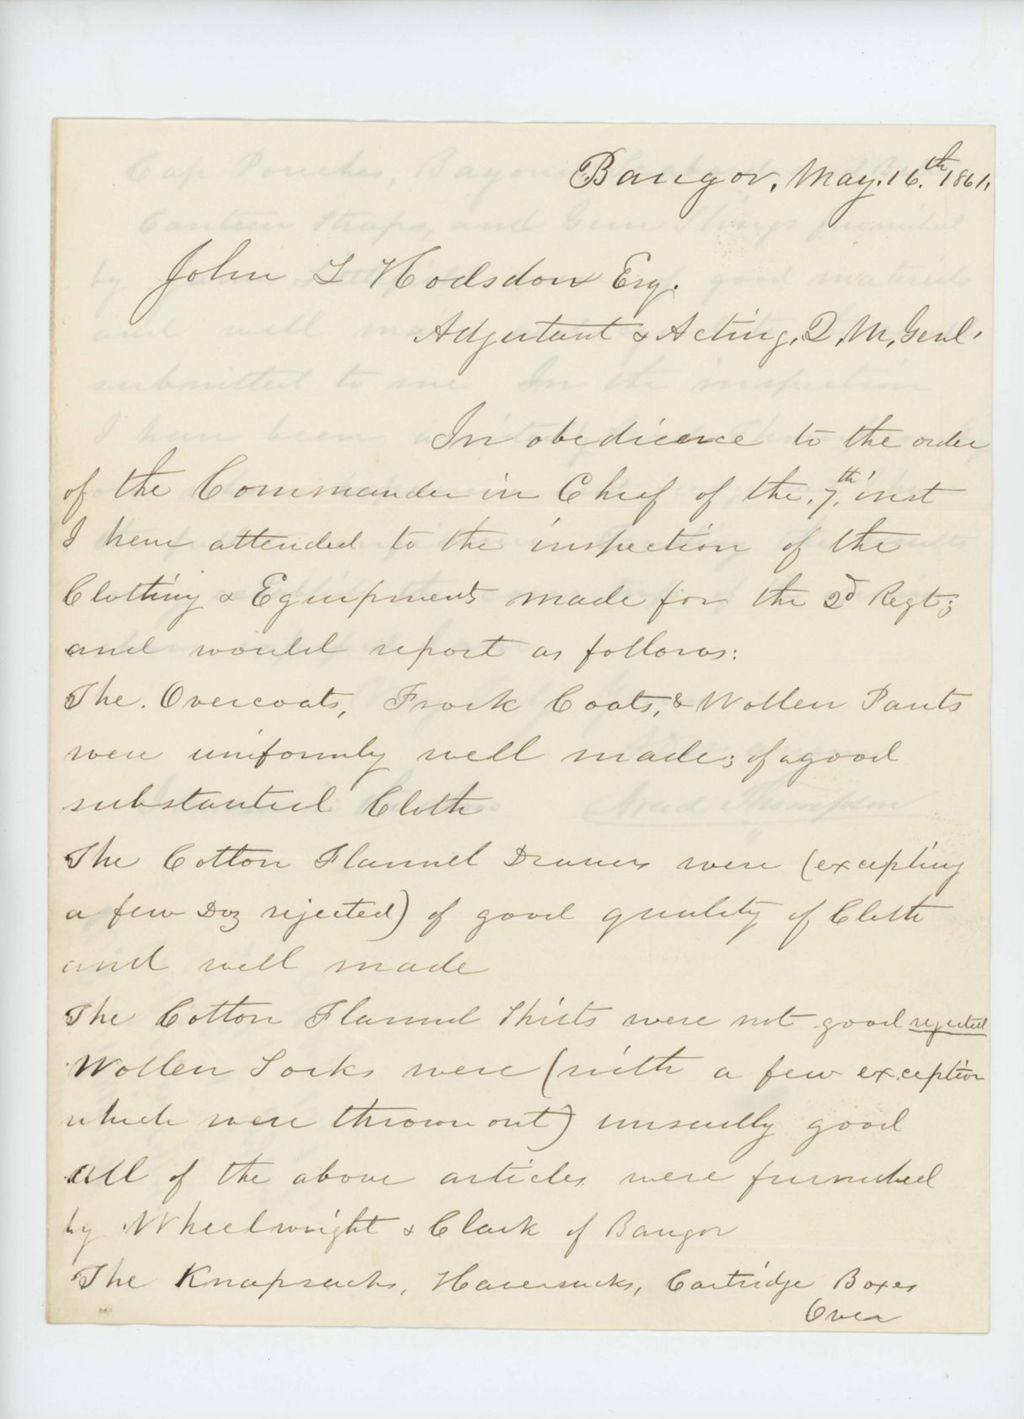 Bangor, May. 16.th 1861.
John L Hodsdon Esq.
Adjutant & Acting, Q, M, Genl.
In obedience to the order
of the Commander in Chief of the, 7,th inst
I have attended to the inspection of the
Clothing & Equipments made for the 2d Regt;
and would report as follows:
The. Overcoats, Frock Coats, & Wollen Pants
were uniformly well made; of a good
substantial Cloth
The Cotton Flannel Drawers were (excepting
a few Doz rejected) of good quality of Cloth
and well made
The Cotton Flannel Shirts were not good rejected
Wollen Socks were (with a few exception
which were thrown out) unusually good
all of the above articles were furnished
by Wheelwright & Clark of Bangor
The Knapsacks, Haversacks, Cartridge Boxes
Over